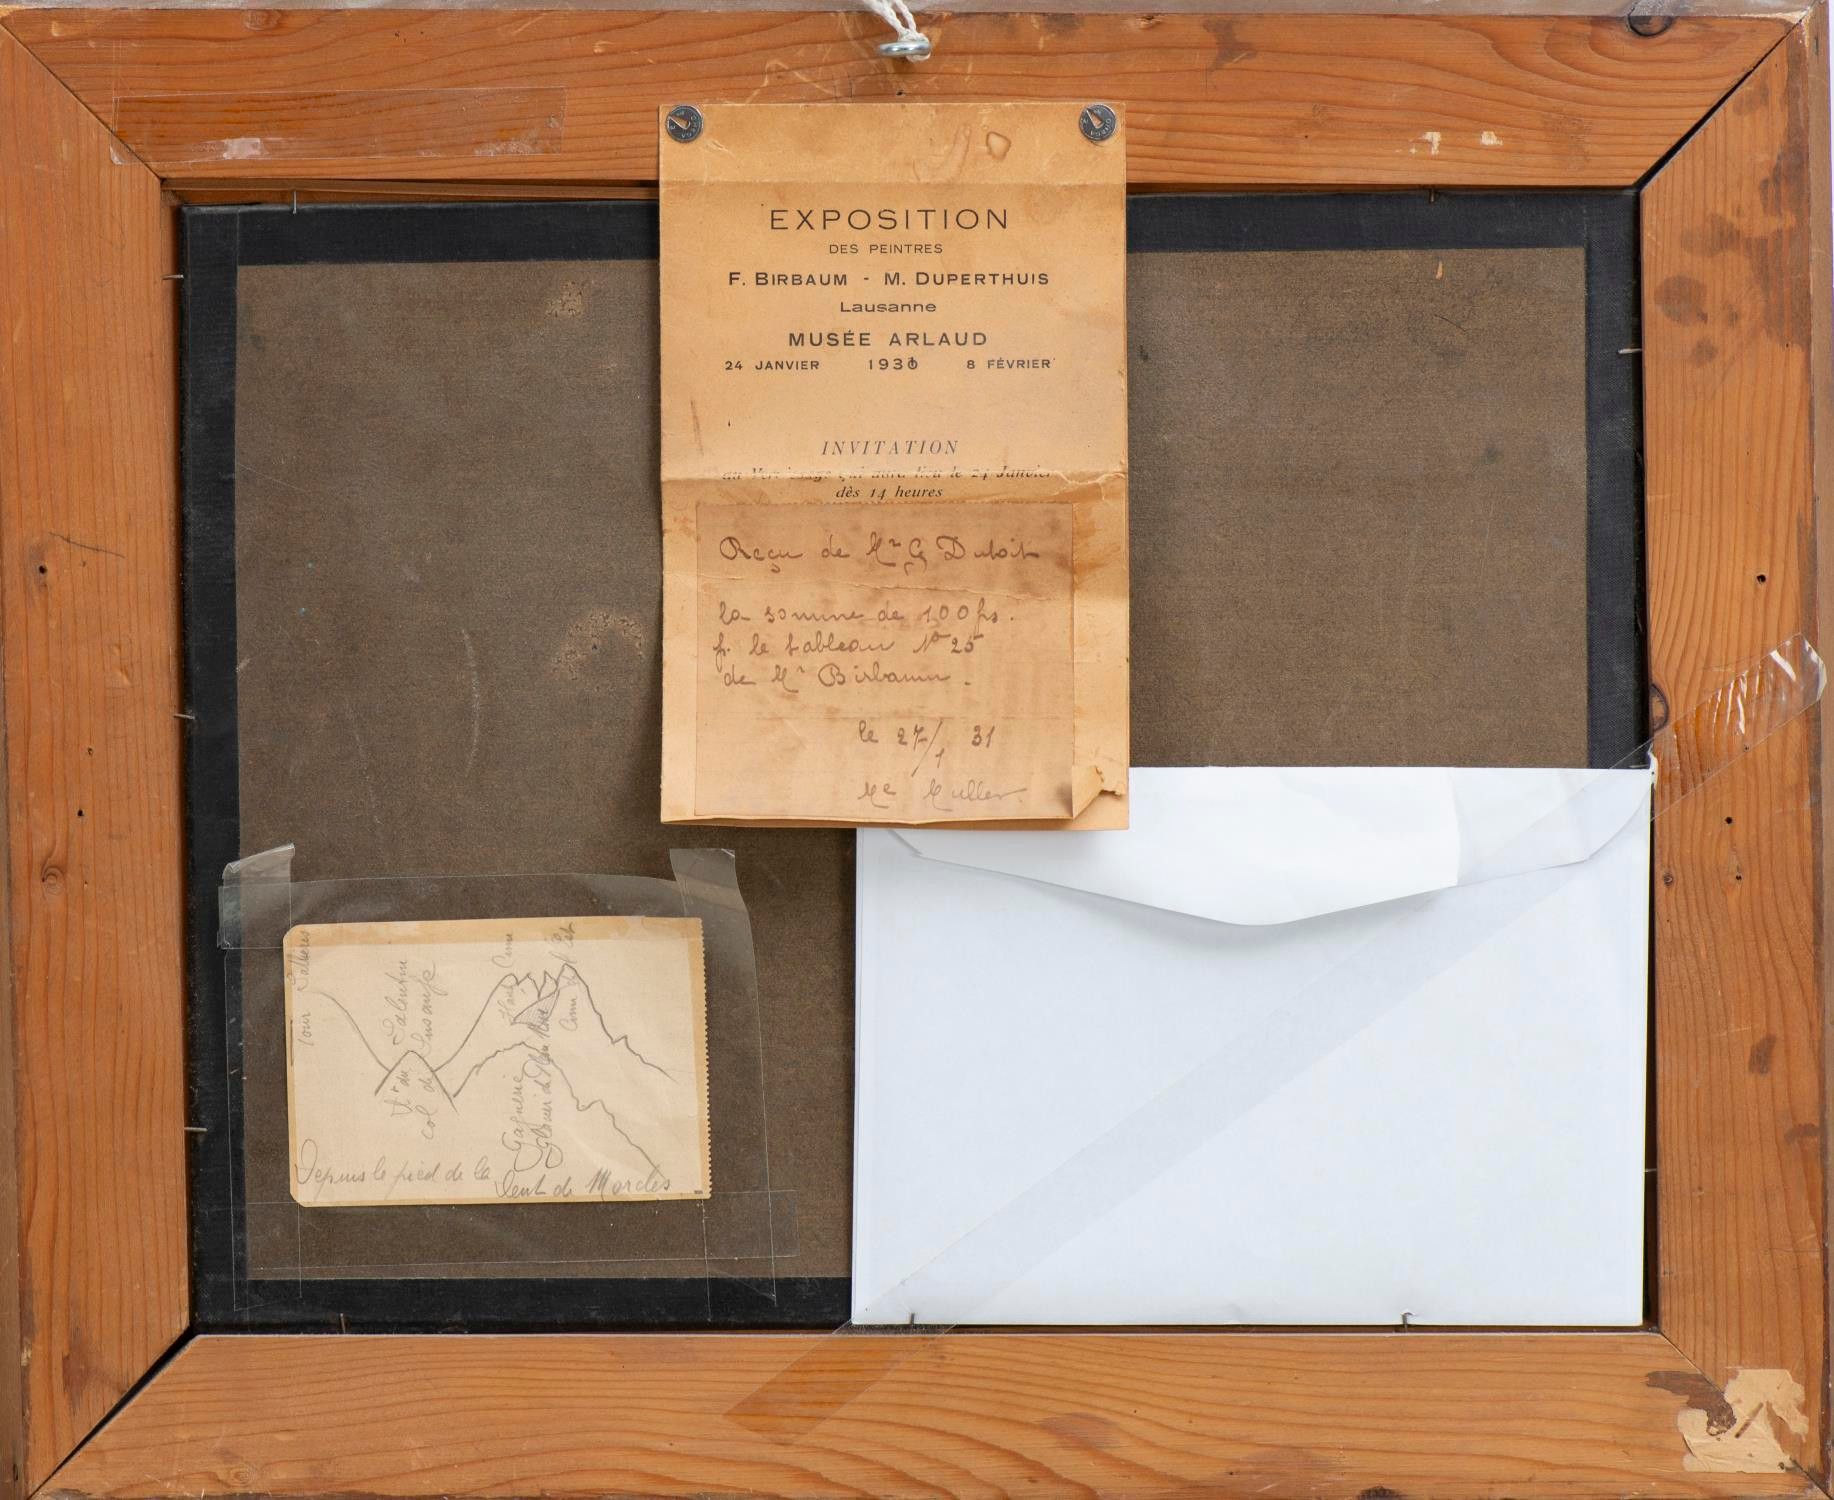 EXPOSITION
DES PEINTRES
F. BIRBAUM - M. DUPERTHUIS
Lausanne
MUSÉE ARLAUD
24 JANVIER 1931 8 FÉVRIER
INVITATION
au Vernissage qui aura lieu le 24 Janvier
dès 14 heures
Reçu de Mr G Dutoit
la somme de 100 frs.
p. le tableau No 25
de Mr Birbaum.
le 27/1 31
Me Muller
Tour Sallières
Pt du Salentin
col de Susanfe
Haute Cime
Gagnerie
Glacier de Plan Névé
Cime de l'Est
Depuis le pied de la Dent de Morcles